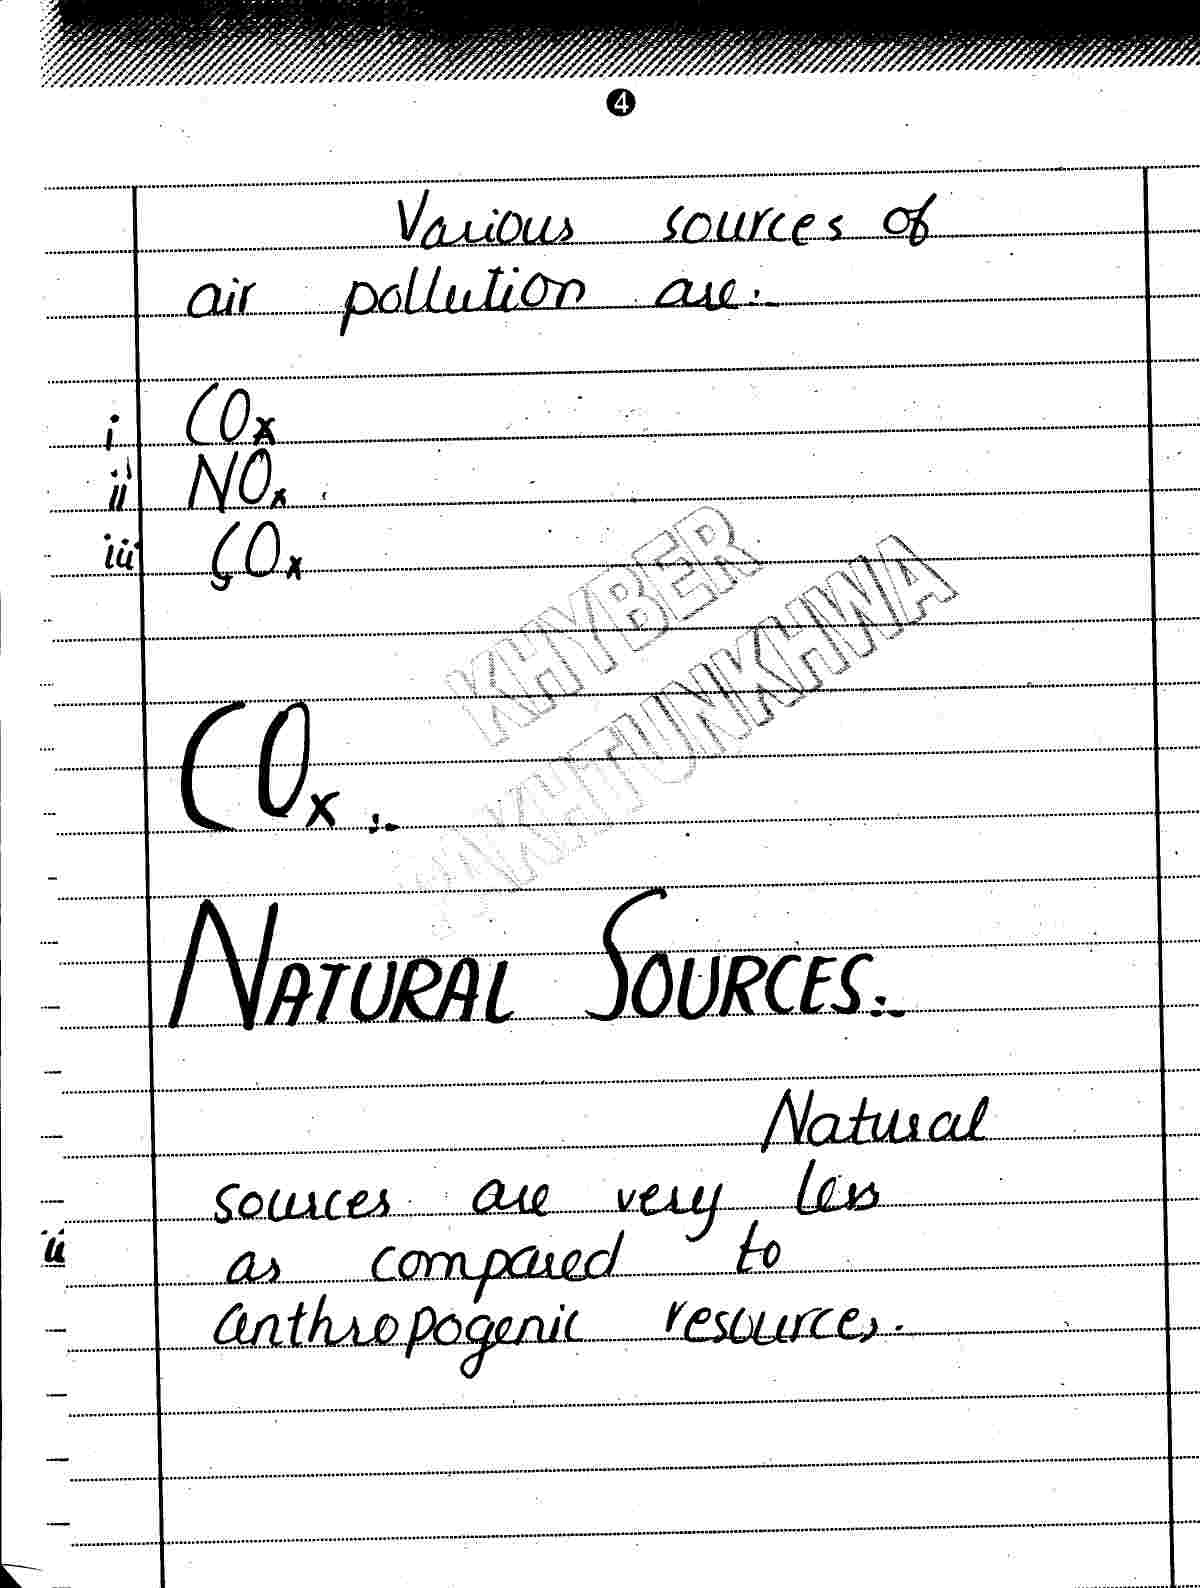 4
Various sources of
air pollution are:-
i COx
ii NOx
iii SOx
KHYBER
PAKHTUNKHWA
COx :-
NATURAL SOURCES:-
Natural
sources are very less
ii
as compared to
anthropogenic resources.